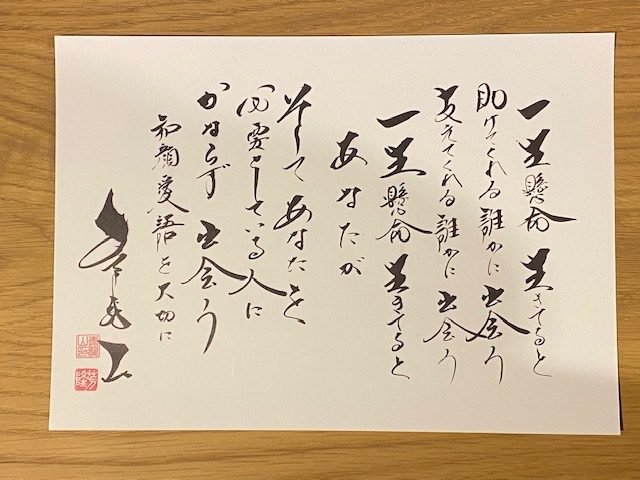 一生懸命 生きてると
助けてくれる 誰かに 出会う
支えてくれる 誰かに 出会う
一生懸命 生きてると
あなたが
そして あなたを
必要としている人に
かならず 出会う
和顔愛語を大切に